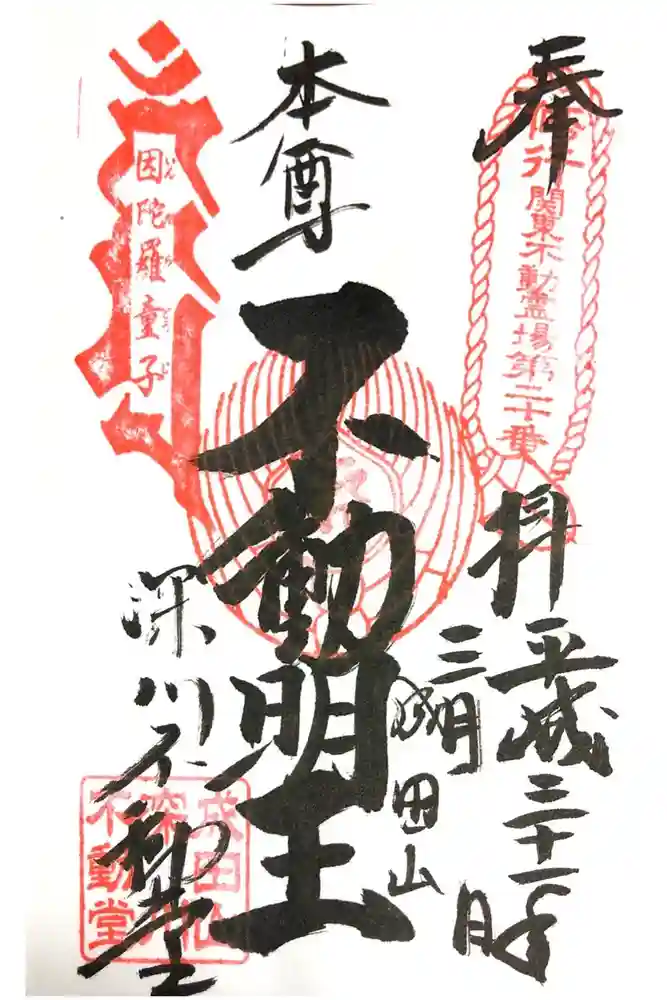 奉拝
平成三十一年
三月
関東不動霊場第二十番
本尊
不動明王
成田山
深川不動堂
因陀羅童子
いんだらどうじ
成田山
深川
不動堂